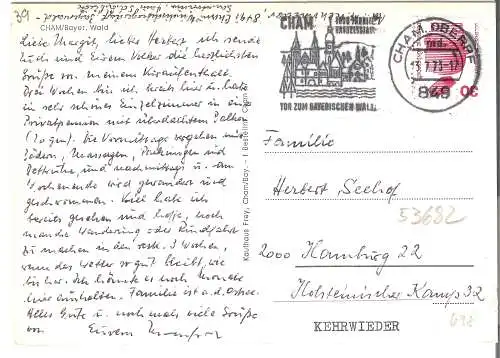 39
CHAM/Bayer. Wald
Liebe Margit, lieber Herbert ich sende
Euch und Eurem Volker die herzlichsten
Grüße von meinem Kuraufenthalt.
Drei Wochen bin ich bereits hier u. habe
ein sehr schönes Einzelzimmer in einer
Privatpension mit überdachtem Balkon
Die Vormittage vergehen mit
Bädern, Massagen, Packungen und
Bettruhe, und nachmittags u. am
Wochenende wird gewandert und
geschwommen. Viel habe ich
bereits gesehen und hoffe, noch
manche Wanderung oder Rundfahrt
zu machen in den restl. 3 Wochen,
wenn das Wetter so gut bleibt, wie
bisher. Ich könnte es noch Monate
hier aushalten. Familie ist a. d. Ostsee.
Alles Gute u. nochmals viele Grüße
von Eurem
Kaufhaus Frey, Cham/Bay.
CHAM
TOR ZUM BAYERISCHEN WALD
CHAM, OBERPF
849
30
Familie
Herbert Seehof
53682
2000 Hamburg 22
Holsteinischer Kamp 32
KEHRWIEDER